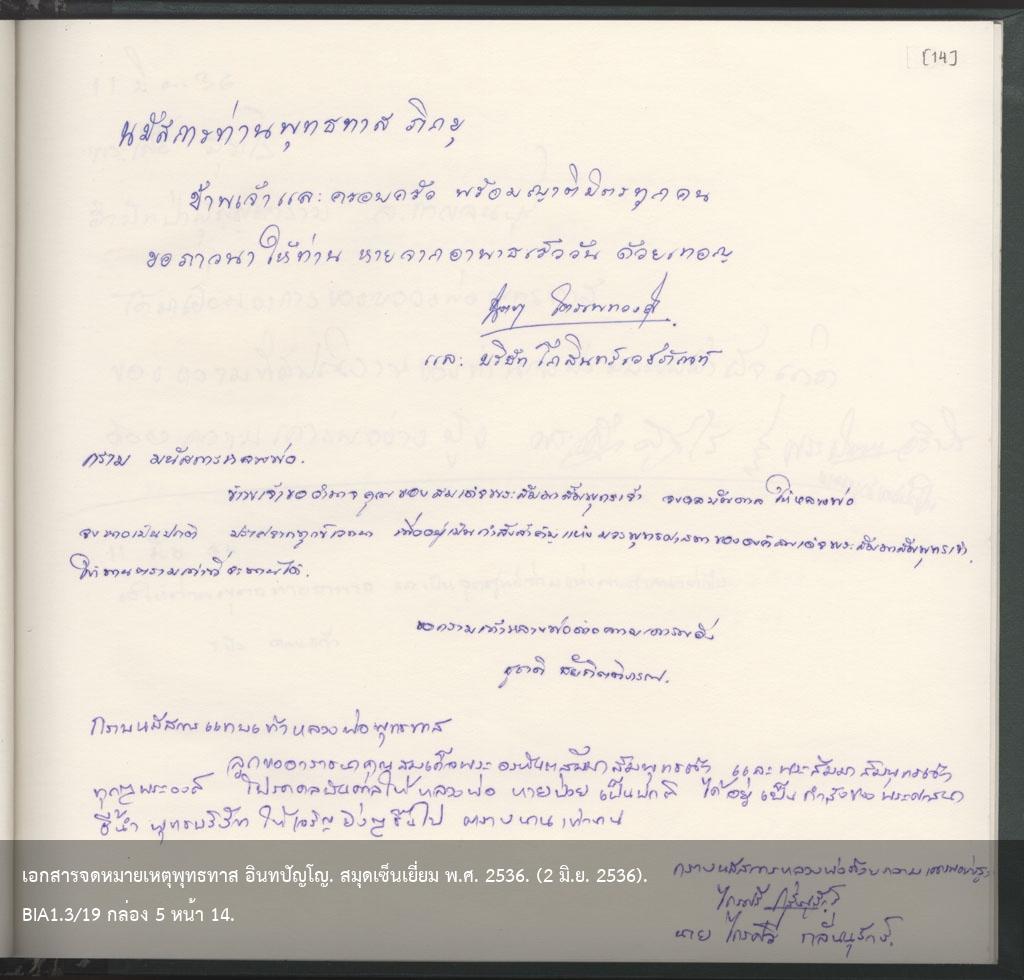 [14]
นมัสการท่านพุทธทาส ภิกขุ
ข้าพเจ้าและครอบครัว พร้อมญาติมิตรทุกคน
ขอภาวนาให้ท่าน หายจากอาพาธเร็ววัน ด้วยเทอญ
และ บริษัท โกสินทร์เวชภัณฑ์
กราบ นมัสการหลวงพ่อ.
ข้าพเจ้าขออำนาจคุณของสมเด็จพระสัมมาสัมพุทธเจ้า จงดลบันดาล ให้หลวงพ่อ
จงหายเป็นปกติ ปราศจากทุกข์เวทนา เพื่ออยู่เป็นกำลังสำคัญแห่งบวรพุทธศาสนาขององค์สมเด็จพระสัมมาสัมพุทธเจ้า.
ให้นานตราบเท่าที่จะนานได้.
ขอกราบเท้าหลวงพ่อด้วยความเคารพยิ่ง
ชูชาติ
กราบนมัสการแทบเท้าหลวงพ่อพุทธทาส
ลูกขออาราธนาคุณสมเด็จพระอรหันตสัมมาสัมพุทธเจ้า และพระสัมมาสัมพุทธเจ้า
ทุกๆพระองค์ โปรดดลบันดาลให้หลวงพ่อ หายป่วย เป็นปกติ ได้อยู่เป็นกำลังของพระศาสนา
ชี้นำ พุทธบริษัท ให้เจริญยิ่งๆขึ้นไป ตราบนานเท่านาน
กราบนมัสการหลวงพ่อด้วยความเคารพอย่างสูง
ไกรศรี
นาย ไกรศรี กลั่นนุรักษ์.
เอกสารจดหมายเหตุพุทธทาส อินทปัญโญ. สมุดเซ็นเยี่ยม พ.ศ. 2536. (2 มิ.ย. 2536).
BIA1.3/19 กล่อง 5 หน้า 14.